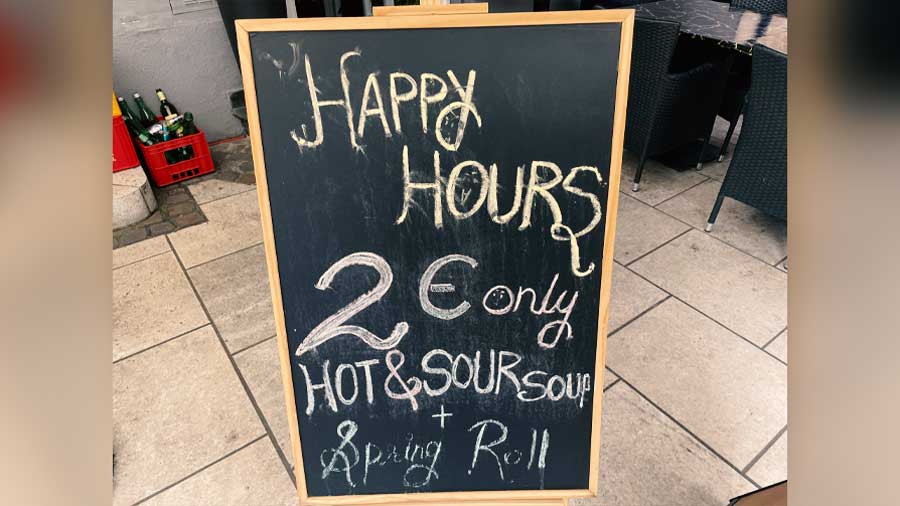 Happy
Hours
2 € only
HOT & SOUR SOUP
+
Spring Roll